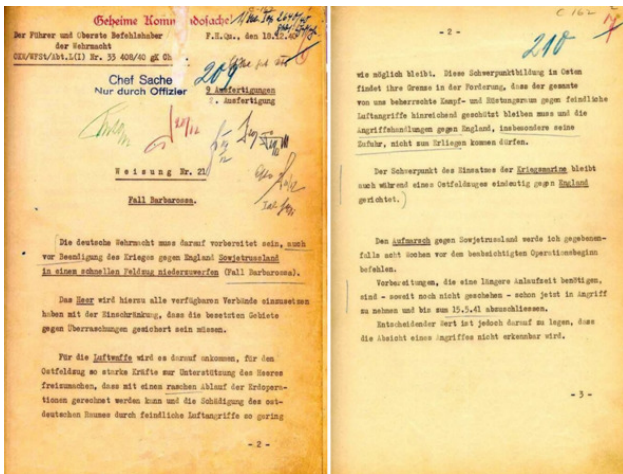 Geheime Kommandosache
Der Führer und Oberste Befehlshaber
F.H.Qu., den
der Wehrmacht
OKW/WFSt/Abt.L(I) Nr. 33 408/40 gK
Chef Sache
Nur durch Offizier
209
9 Ausfertigungen
Ausfertigung
Weisung Nr. 21
Fall Barbarossa.
Die deutsche Wehrmacht muss darauf vorbereitet sein, auch
vor Beendigung des Krieges gegen England Sowjetrussland
in einem schnellen Feldzug niederzuwerfen (Fall Barbarossa).
Das Heer wird hierzu alle verfügbaren Verbände einzusetzen
haben mit der Einschränkung, dass die besetzten Gebiete
gegen Überraschungen gesichert sein müssen.
Für die Luftwaffe wird es darauf ankommen, für den
Ostfeldzug so starke Kräfte zur Unterstützung des Heeres
freizumachen, dass mit einem raschen Ablauf der Erdopera-
tionen gerechnet werden kann und die Schädigung des ost-
deutschen Raumes durch feindliche Luftangriffe so gering
- 2 -
- 2 -
C 162
210
wie möglich bleibt. Diese Schwerpunktbildung im Osten
findet ihre Grenze in der Forderung, dass der gesamte
von uns beherrschte Kampf- und Rüstungsraum gegen feindliche
Luftangriffe hinreichend geschützt bleiben muss und die
Angriffshandlungen gegen England, insbesondere seine
Zufuhr, nicht zum Erliegen kommen dürfen.
Der Schwerpunkt des Einsatzes der Kriegsmarine bleibt
auch während eines Ostfeldzuges eindeutig gegen England
gerichtet.
Den Aufmarsch gegen Sowjetrussland werde ich gegebenen-
falls acht Wochen vor dem beabsichtigten Operationsbeginn
befehlen.
Vorbereitungen, die eine längere Anlaufzeit benötigen,
sind - soweit noch nicht geschehen - schon jetzt in Angriff
zu nehmen und bis zum 15.5.41 abzuschliessen.
Entscheidender Wert ist jedoch darauf zu legen, dass
die Absicht eines Angriffes nicht erkennbar wird.
- 3 -